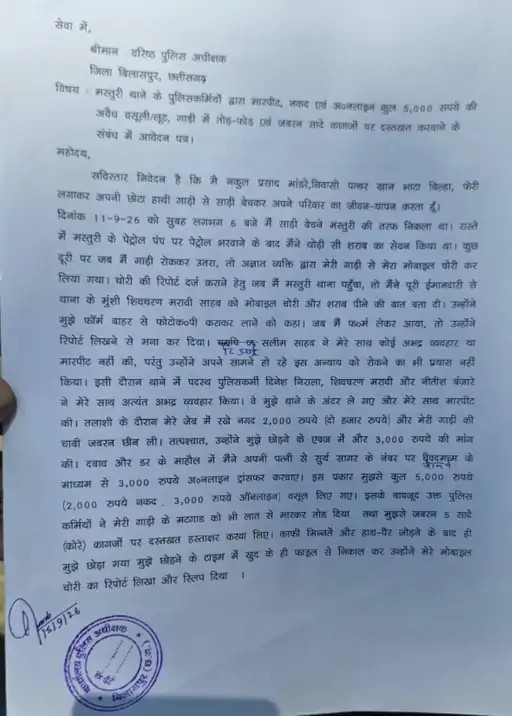 सेवा में,
श्रीमान वरिष्ठ पुलिस अधीक्षक
जिला बिलासपुर, छत्तीसगढ़
विषय : मस्तुरी थाने के पुलिसकर्मियों द्वारा मारपीट, नकद एवं अ०नलाइन कुल 5,000 रुपये की
अवैध वसूली/लूट, गाड़ी में तोड़-फोड़ एवं जबरन सादे कागजों पर दस्तखत करवाने के
संबंध में आवेदन पत्र।
महोदय,
सविस्तार निवेदन है कि मै नकुल प्रसाद मांडरे,निवासी पत्थर खान भाटा बिल्हा, फेरी
लगाकर अपनी छोटा हाथी गाड़ी से साड़ी बेचकर अपने परिवार का जीवन-यापन करता हूँ।
दिनांक 11-9-26 को सुबह लगभग 6 बजे मैं साड़ी बेचने मस्तुरी की तरफ निकला था। रास्ते
में मस्तुरी के पेट्रोल पंप पर पेट्रोल भरवाने के बाद मैंने थोड़ी सी शराब का सेवन किया था। कुछ
दूरी पर जब मैं गाड़ी रोककर उतरा, तो अज्ञात व्यक्ति द्वारा मेरी गाड़ी से मेरा मोबाइल चोरी कर
लिया गया। चोरी की रिपोर्ट दर्ज कराने हेतु जब मैं मस्तुरी थाना पहुँचा, तो मैंने पूरी ईमानदारी से
थाना के मुंशी शिवचरण मरावी साहब को मोबाइल चोरी और शराब पीने की बात बता दी। उन्होंने
मुझे फॉर्म बाहर से फोटोक०पी कराकर लाने को कहा। जब मैं फ०र्म लेकर आया, तो उन्होंने
रिपोर्ट लिखने से मना कर दिया। सलीम साहब ने मेरे साथ कोई अभद्र व्यवहार या
मारपीट नहीं की, परंतु उन्होंने अपने सामने हो रहे इस अन्याय को रोकने का भी प्रयास नहीं
किया। इसी दौरान थाने में पदस्थ पुलिसकर्मी दिनेश निराला, शिवचरण मरावी और नीतीश बंजारे
ने मेरे साथ अत्यंत अभद्र व्यवहार किया। वे मुझे थाने के अंदर ले गए और मेरे साथ मारपीट
की। तलाशी के दौरान मेरे जेब में रखे नगद 2,000 रुपये (दो हजार रुपये) और मेरी गाड़ी की
चाबी जबरन छीन ली। तत्पश्चात, उन्होंने मुझे छोड़ने के एवज में और 3,000 रुपये की मांग
की। दबाव और डर के माहौल में मैंने अपनी पत्नी से सुर्य सागर के नंबर पर के
माध्यम से 3,000 रुपये अ०नलाइन ट्रांसफर करवाए। इस प्रकार मुझसे कुल 5,000 रुपये
(2,000 रुपये नकद , 3,000 रुपये ऑनलाइन) वसूल लिए गए। इसके बावजूद उक्त पुलिस
कर्मियों ने मेरी गाड़ी के मटगाड को भी लात से मारकर तोड दिया तथा मुझसे जबरन 5 सादे
(कोरे) कागजों पर दस्तखत हस्ताक्षर करवा लिए। काफी मिन्नतें और हाथ-पैर जोड़ने के बाद ही
मुझे छोड़ा गया मुझे छोड़ने के टाइम में खुद के ही फाइल से निकाल कर उन्होंने मेरे मोबाइल
चोरी का रिपोर्ट लिखा और स्लिप दिया ।
15/9/26
कार्यालय पुलिस अधीक्षक
बिलासपुर (छ.ग.)